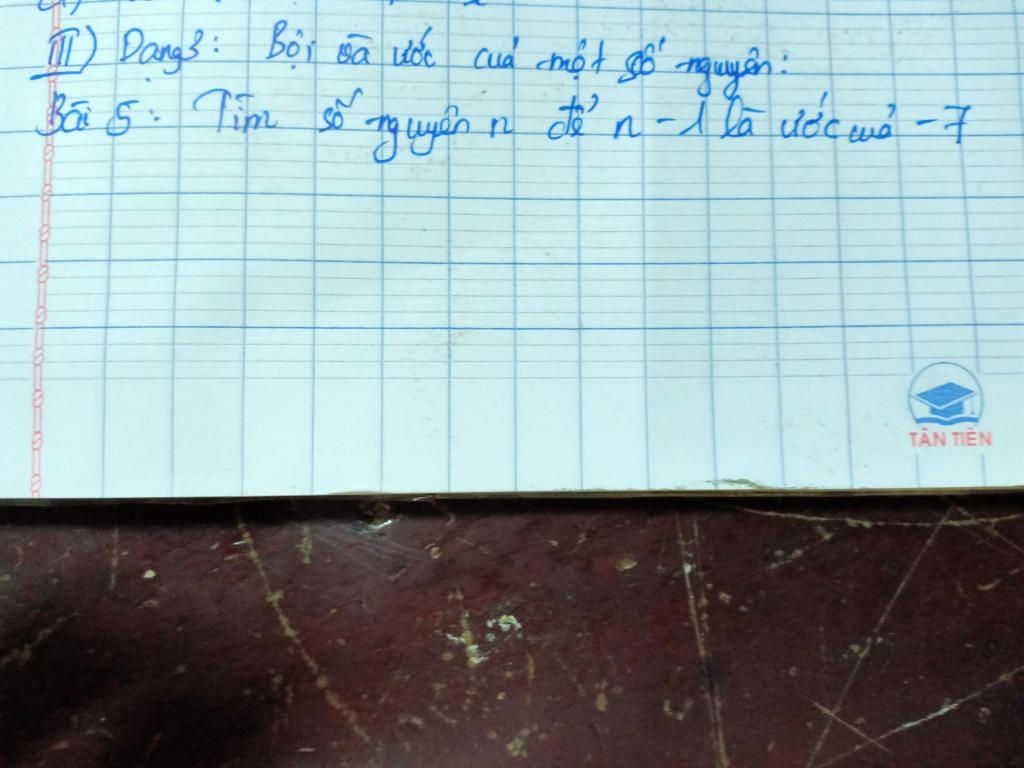 III) Dạng 3: Bội và ước của một số nguyên:
Bài 5: Tìm số nguyên n để n - 1 là ước của - 7
TÂN TIẾN